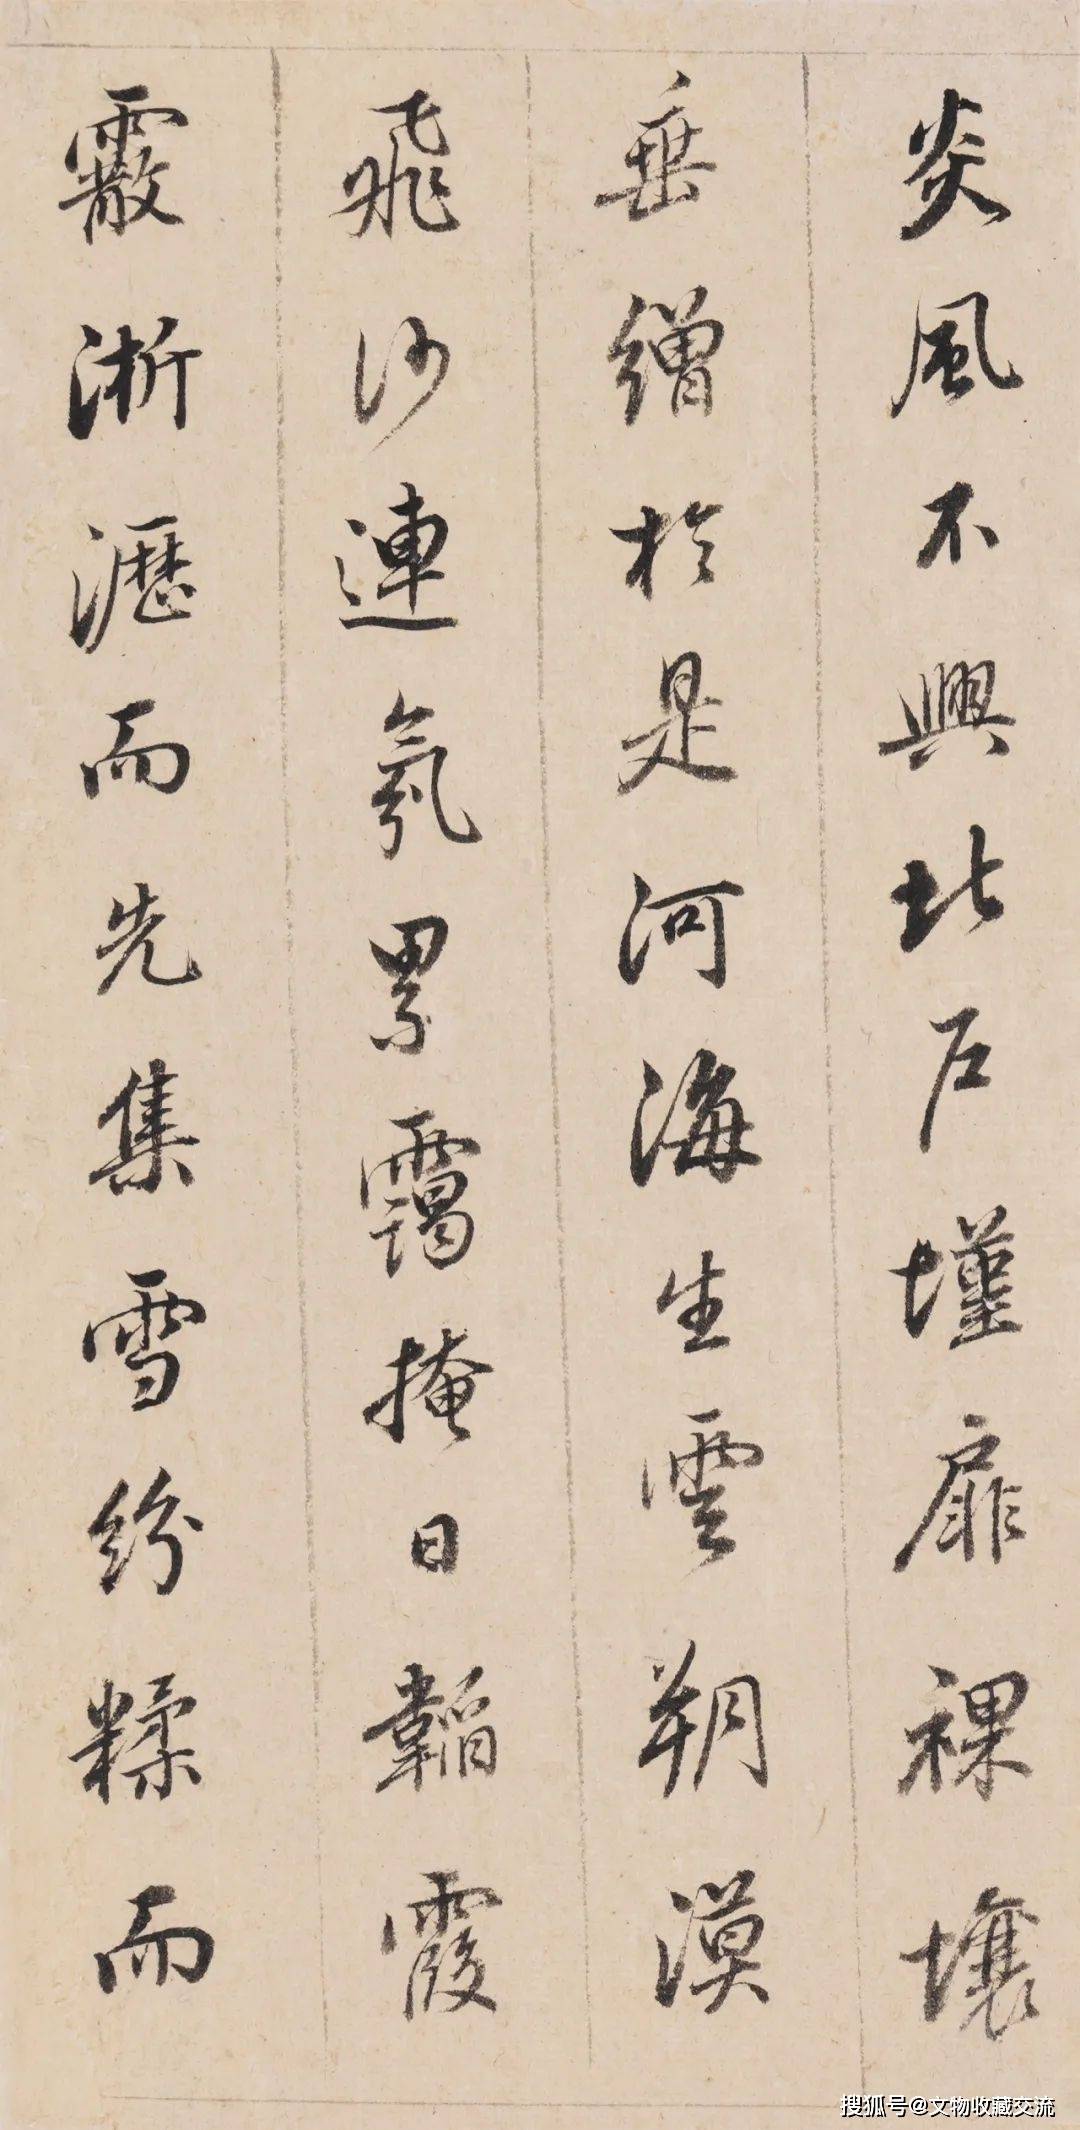 炎風不興北户墐扉裸壤
垂繒於是河海生雲朔漠
飛沙連氛累靄掩日韜霞
霰淅瀝而先集雪紛糅而
搜狐号@文物收藏交流